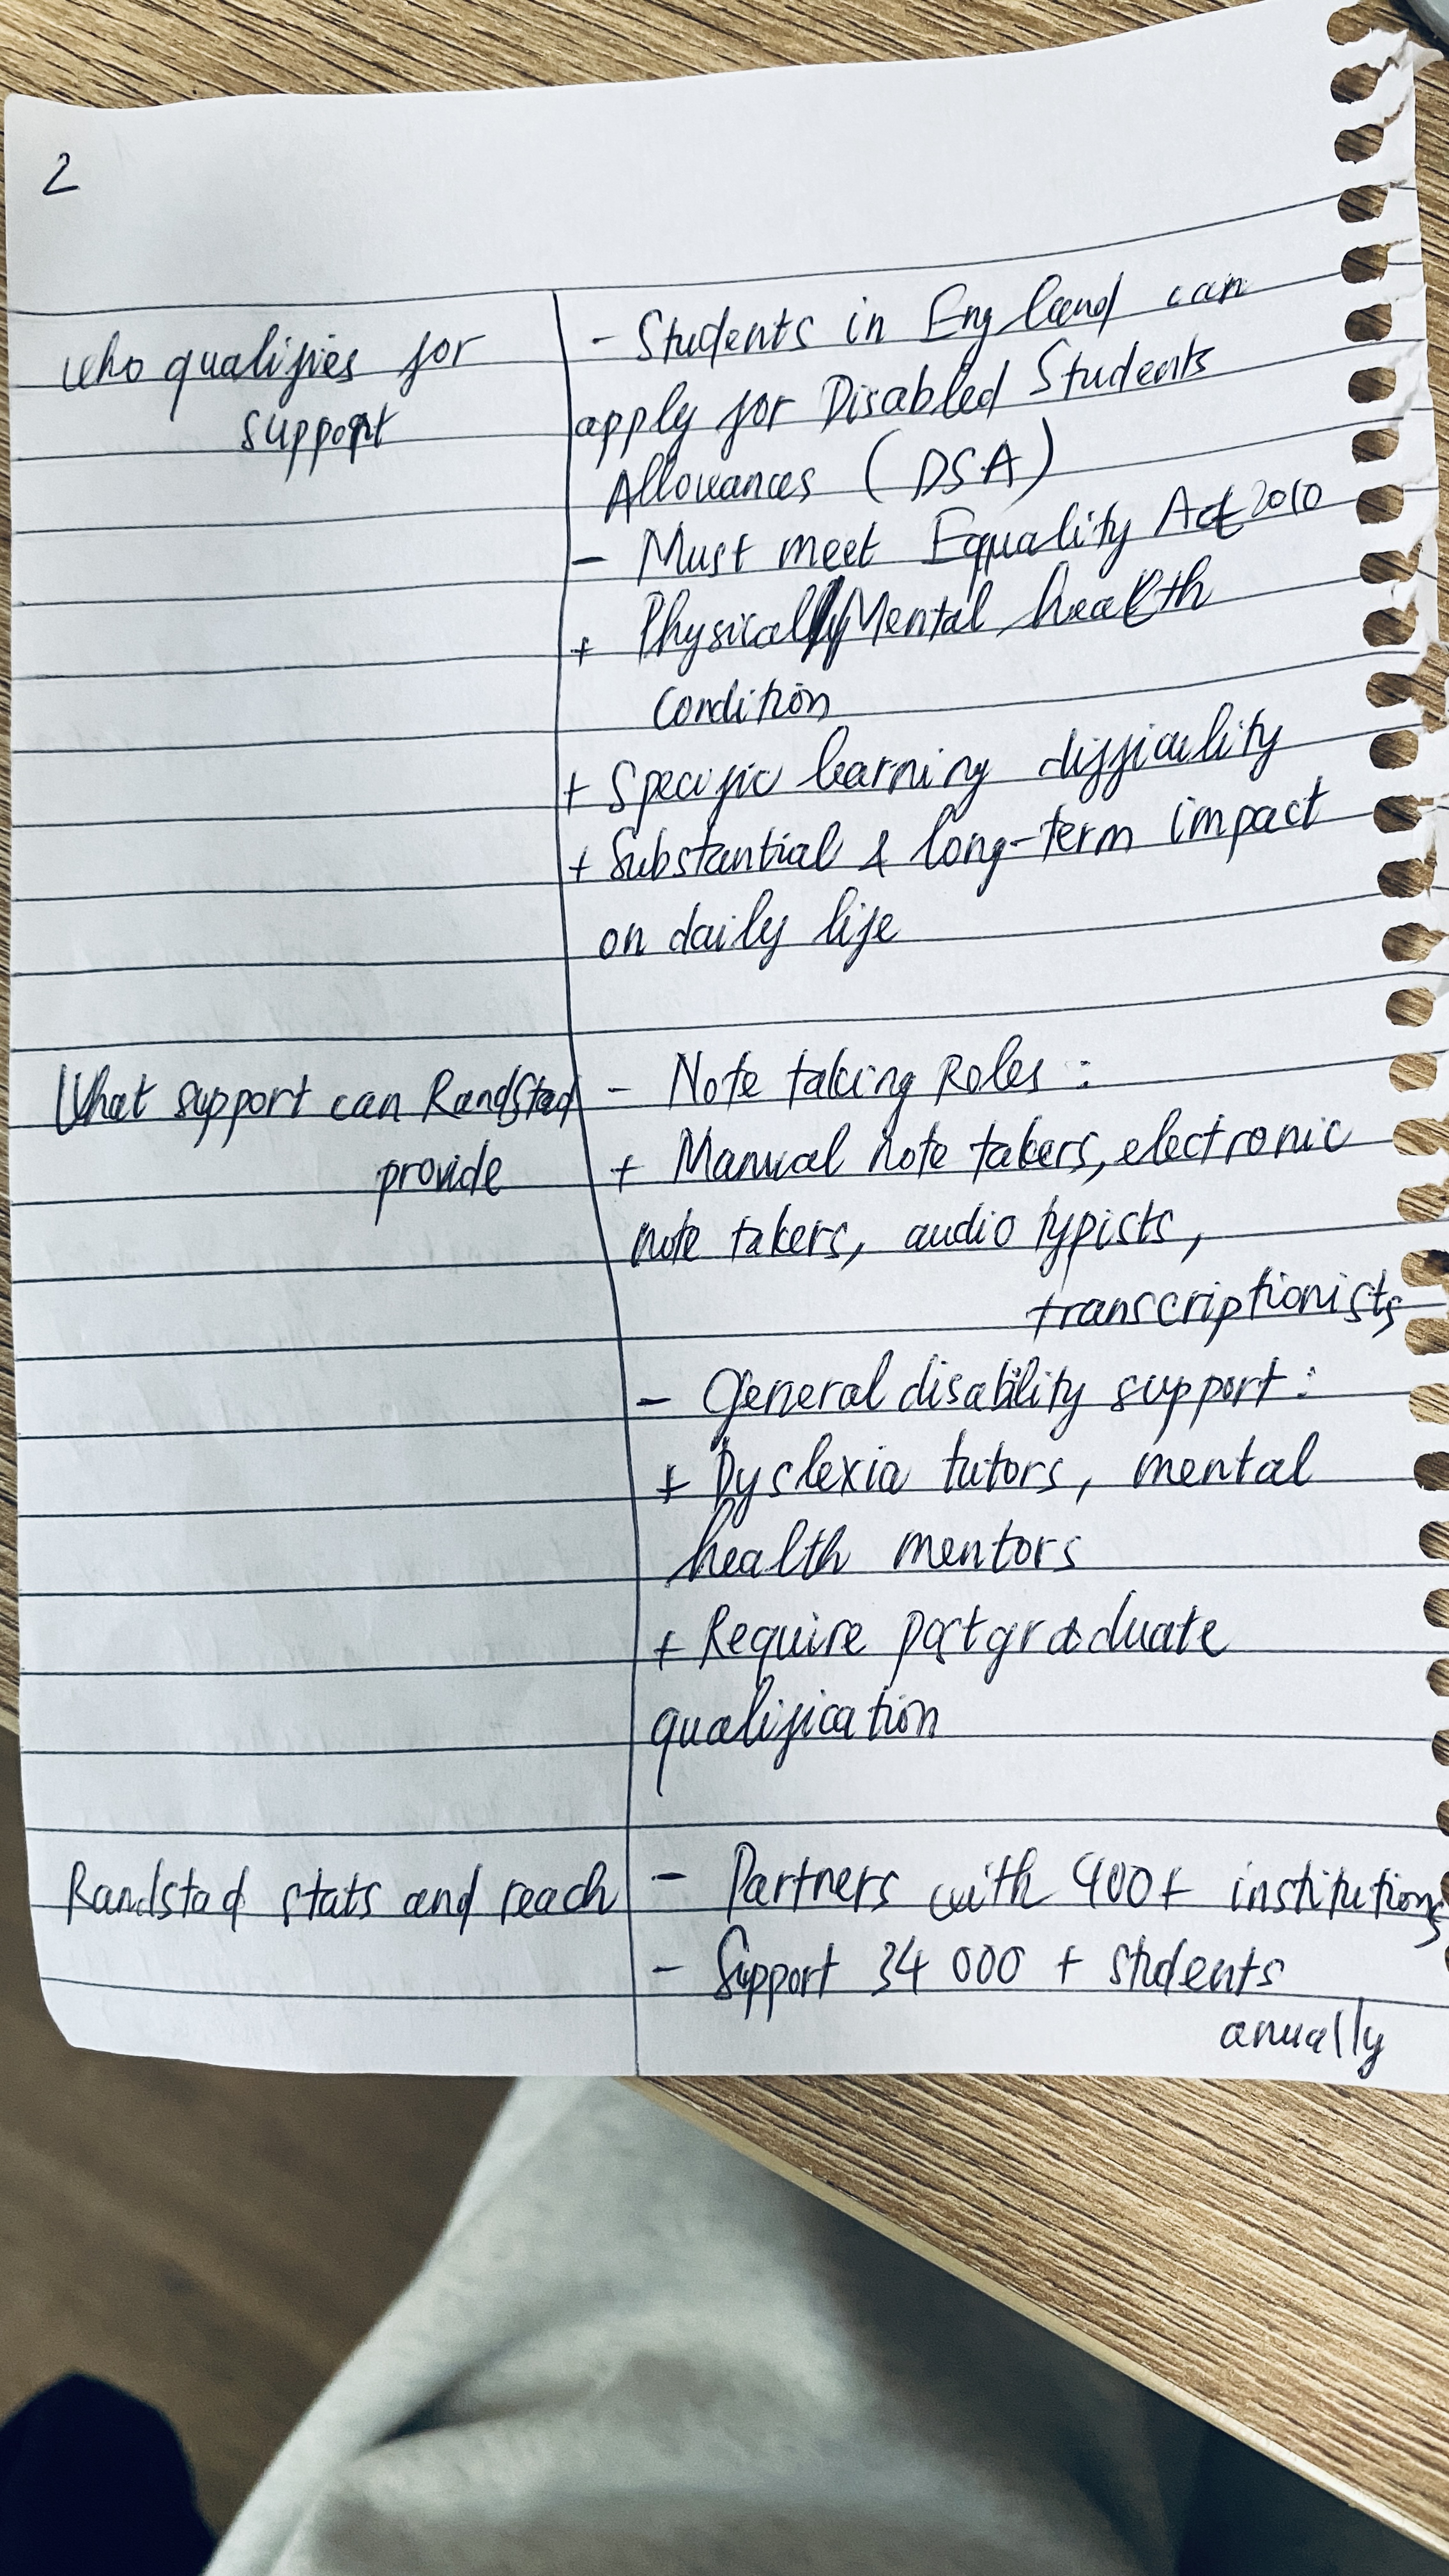 2
who qualifies for
support
- Students in England can
apply for Disabled Students
Allowances (DSA)
- Must meet Equality Act 2010
+ Physical/Mental health
condition
+ Specific learning difficulity
+ Substantial & long-term impact
on daily life
What support can Randstad
provide
- Note taking Roles :
+ Manual note takers, electronic
note takers, audio typists,
transcriptionists
- General disability support :
+ Dyslexia tutors, mental
health mentors
+ Require postgraduate
qualification
Randstad stats and reach
- Partners with 400+ institutions
- Support 34 000 + students
anually